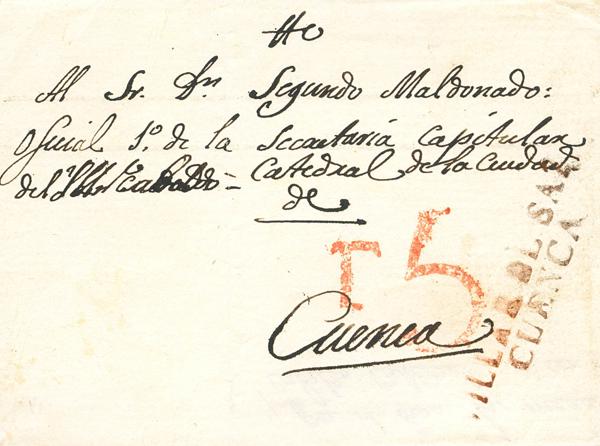 Al Sr. Dn Segundo Maldonado:
Oficial 1º. de la Secretaria Capitular
del Yltre. Cabildo Catedral de la Ciudad
de
Cuenca
15
VILLAR DEL SA
CUENCA